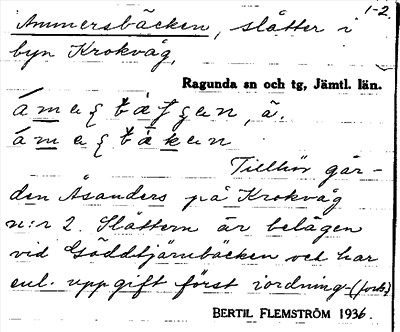 1-2.
Ammersbäcken, slåtter i
byn Krokvåg,
Ragunda sn och tg, Jämtl. län.
ä.
Tillhör går-
den Åsanders på Krokvåg
n:r 2. Slåttern är belägen
vid Gäddtjärnbäcken och har
enl. uppgift först iordning-(forts)
BERTIL FLEMSTRÖM 1936.